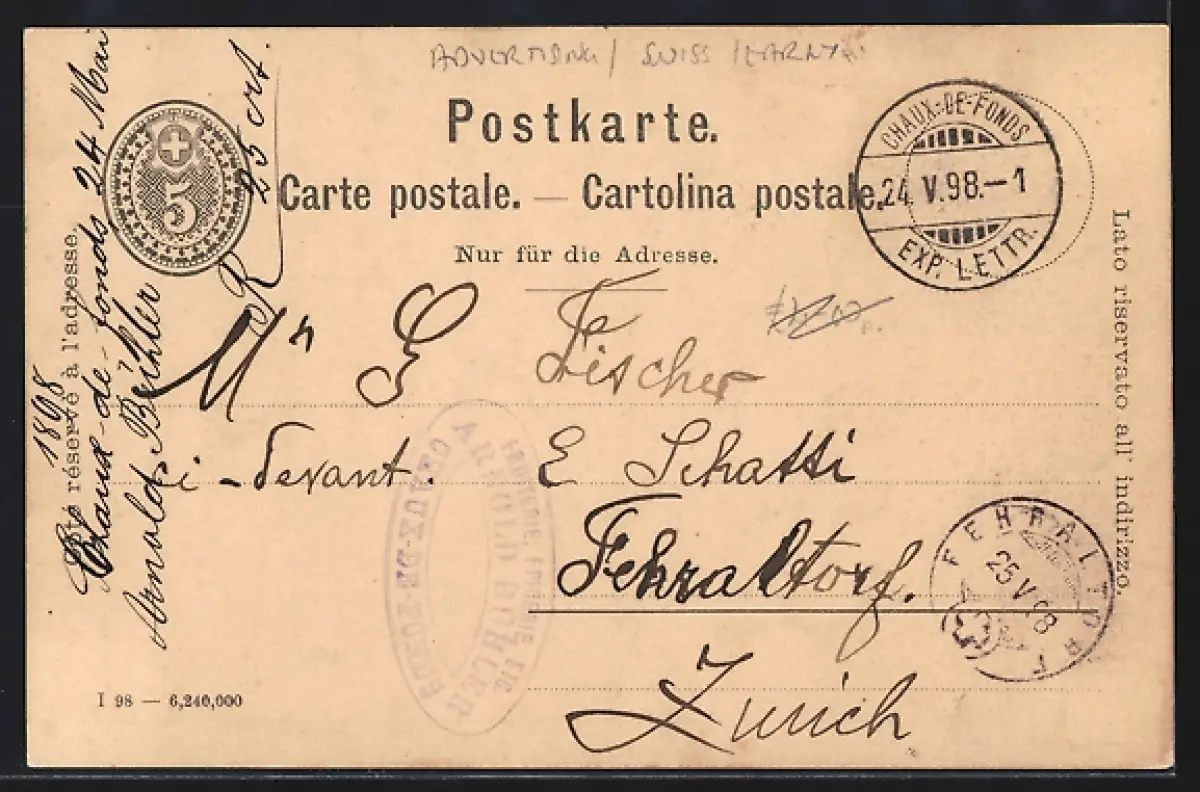 ADVERTISING / SWISS /
Postkarte.
Carte postale. — Cartolina postale.
Nur für die Adresse.
5
CHAUX-DE-FONDS
24. V. 98.–1
EXP. LETTR.
Côté réservé à l'adresse.
Lato riservato all' indirizzo.
1898
Chaux-de-fonds 24 Mai
Arnold Böhler
R 25 crt.
Mr E Fischer
ci-devant. E Schatti
Fehraltorf.
Zurich
EPICERIE, ETC.
ARNOLD BÖHLER
CHAUX-DE-FONDS
FEHRALTORF
25 V 98
I 98 — 6,240,000